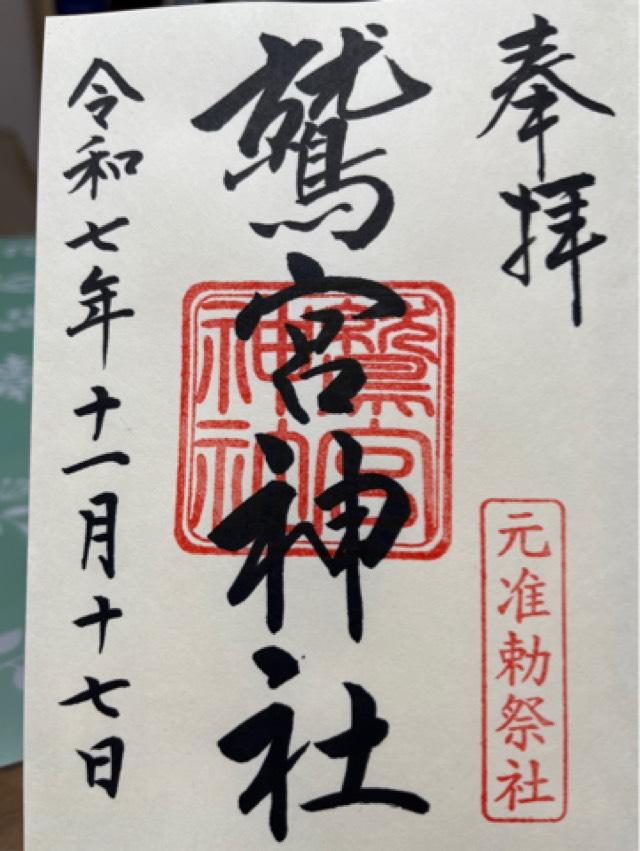 奉拝
元准勅祭社
鷲宮神社
鷲宮
神社
令和七年十一月十七日